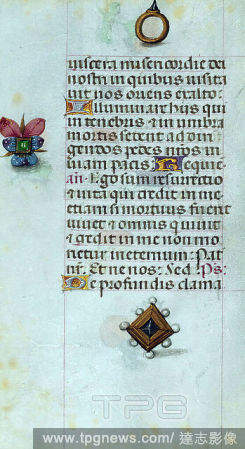 viscera misericordie dei
nostri in quibus visita
uit nos oriens ex alto:
Illuminare his qui
in tenebris et in umbra
mortis sedent ad diri
gendos pedes nostros in
uiam pacis: Requie
an. Ego sum resurrectio
et uita qui credit in me
etiam si mortuus fuerit
uiuet et omnis qui uiuit
et credit in me non mo
rietur in eternum: Pat
nr. Et ne nos: Sed Ps:
De profundis clama
TPG
www.tpgnews.com/達志影像